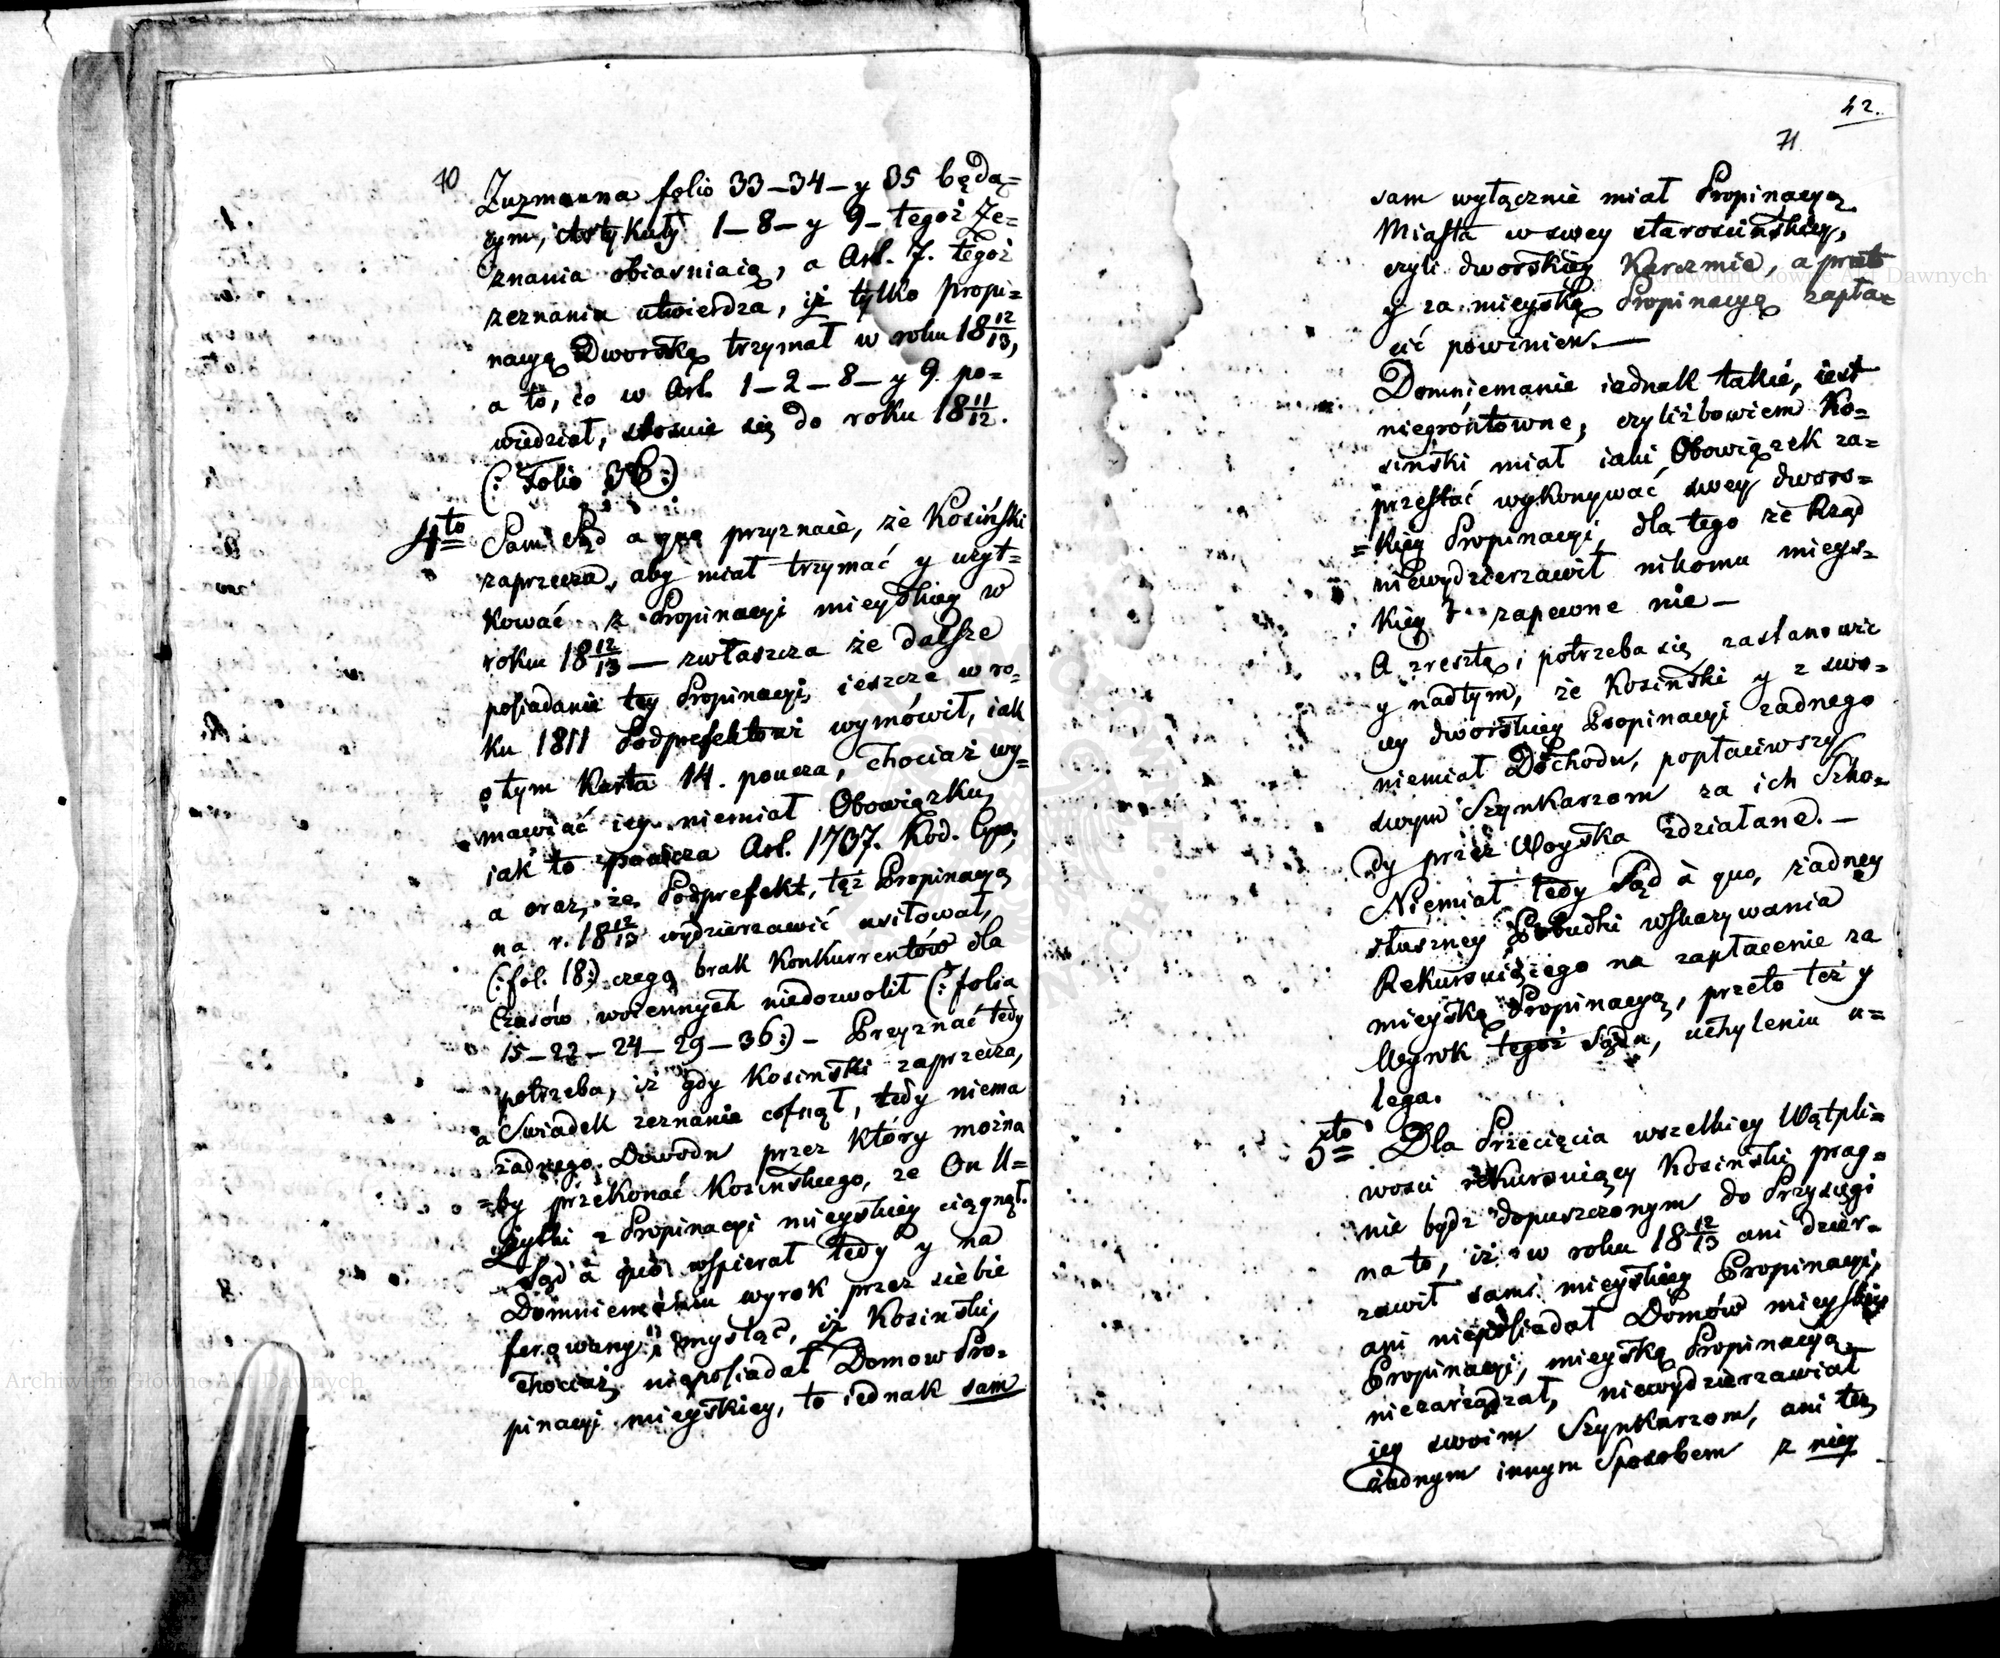 70
Zuzmanna folio 33–34–y 35 będą=
cym, Artykuły 1–8–y 9– tegoż Ze=
znania obiasniaią, a Art. 7. tegoż
zeznania utwierdza, iż tylko propi=
nacyą Dworską trzymał w roku 18 12/13,
a to, co w Art. 1–2–8–y 9. po=
wiedział, stosuie się do roku 18 11/12.
(: Folio 36:)
4to Sam Sąd a quo przyznaie, że Kosiński
zaprzecza, aby miał trzymać y użyt=
kować z Propinacyi mieyskiey w
roku 18 12/13 — zwłaszcza że dalsze
posiadanie tey Propinacyi, ieszcze w ro=
ku 1811 Podprefektowi wymówił, iak
o tym Karta 14. poucza, chociaż wy=
mawiać iey niemiał Obowiązku,
iak to poucza Art. 1737. Kod. Cyw,
a oraz, że Podprefekt, tęż Propinacyą
na r. 18 12/13 wydzierzawić usiłował,
(: fol. 18:) czego brak Konkurrentów dla
Czasów woiennych niedozwolił (: folia
15–22–24–29–36:) – Przyznać tedy
potrzeba, iż gdy Kosiński zaprzecza,
a Swiadek zeznanie cofnął, tedy niema
żadnego Dowodu przez który można
=by przekonać Kosińskiego, że On U=
żytki z Propinacyi mieyskiey ciągnął.
Sąd à quo wspierał tedy y na
Domniemaniu wyrok przez siebie
ferowany, mysląc, iż Kosiński,
chociaż nieposiadał Domow Pro=
pinacyi mieyskiey, to iednak sam
42.
71
sam wyłącznie miał Propinacyą
Miasta w swey starościńskiey,
czyli dworskiey Karczmie, a przeto
y za mieyską Propinacyą zapła=
cić powinien.—
Domniemanie iednak takie, iest
niegróntowne, czyliż bowiem Ko=
siński miał iaki Obowiązek za=
przestać wykonywać swey dwors=
=kiey Propinacyi, dla tego że Rząd
niewydzierzawił nikomu mieys=
kiey? zapewne nie —
A zresztą, potrzeba się zastanowić
y nadtym, że Kosiński y z swo=
iey dworskiey Propinacyi żadnego
niemiał Dochodu, popłaciwszy
swym Szynkarzom za ich Szko=
dy przez Woyska zdziałane. —
Niemiał tedy Sąd à quo, żadney
słuszney Pobudki wskazywania
Rekursuiącego na zapłacenie za
mieyską Propinacyą, przeto też y
Wyrok tegoż Sądu, uchyleniu u=
lega.
5to Dla Przecięcia wszelkiey Wątpli=
wosci rekursuiący Kosiński prag=
nie bydz dopuszczonym do Przysięgi
na to, iż w roku 18 12/13 ani dzier=
zawił sam mieyskiey Propinacyi,
ani nieposiadał Domów mieyskiey
Propinacyi, mieyską Propinacyą
niezarządzał, niewydzierzawiał
iey swoim Szynkarzom, ani też
żadnym innym Sposobem z niey
Archiwum Główne Akt Dawnych
Archiwum Główne Akt Dawnych